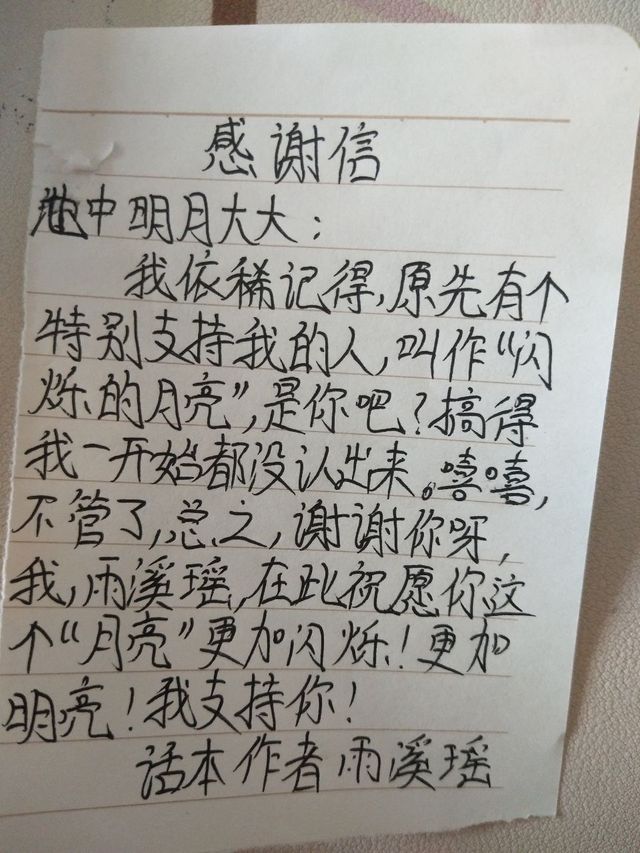 感谢信
池中明月大大：
我依稀记得,原先有个
特别支持我的人,叫作“闪
烁的月亮”,是你吧?搞得
我一开始都没认出来。嘻嘻,
不管了,总之,谢谢你呀,
我,雨溪瑶,在此祝愿你这
个“月亮”更加闪烁!更加
明亮!我支持你!
话本作者雨溪瑶